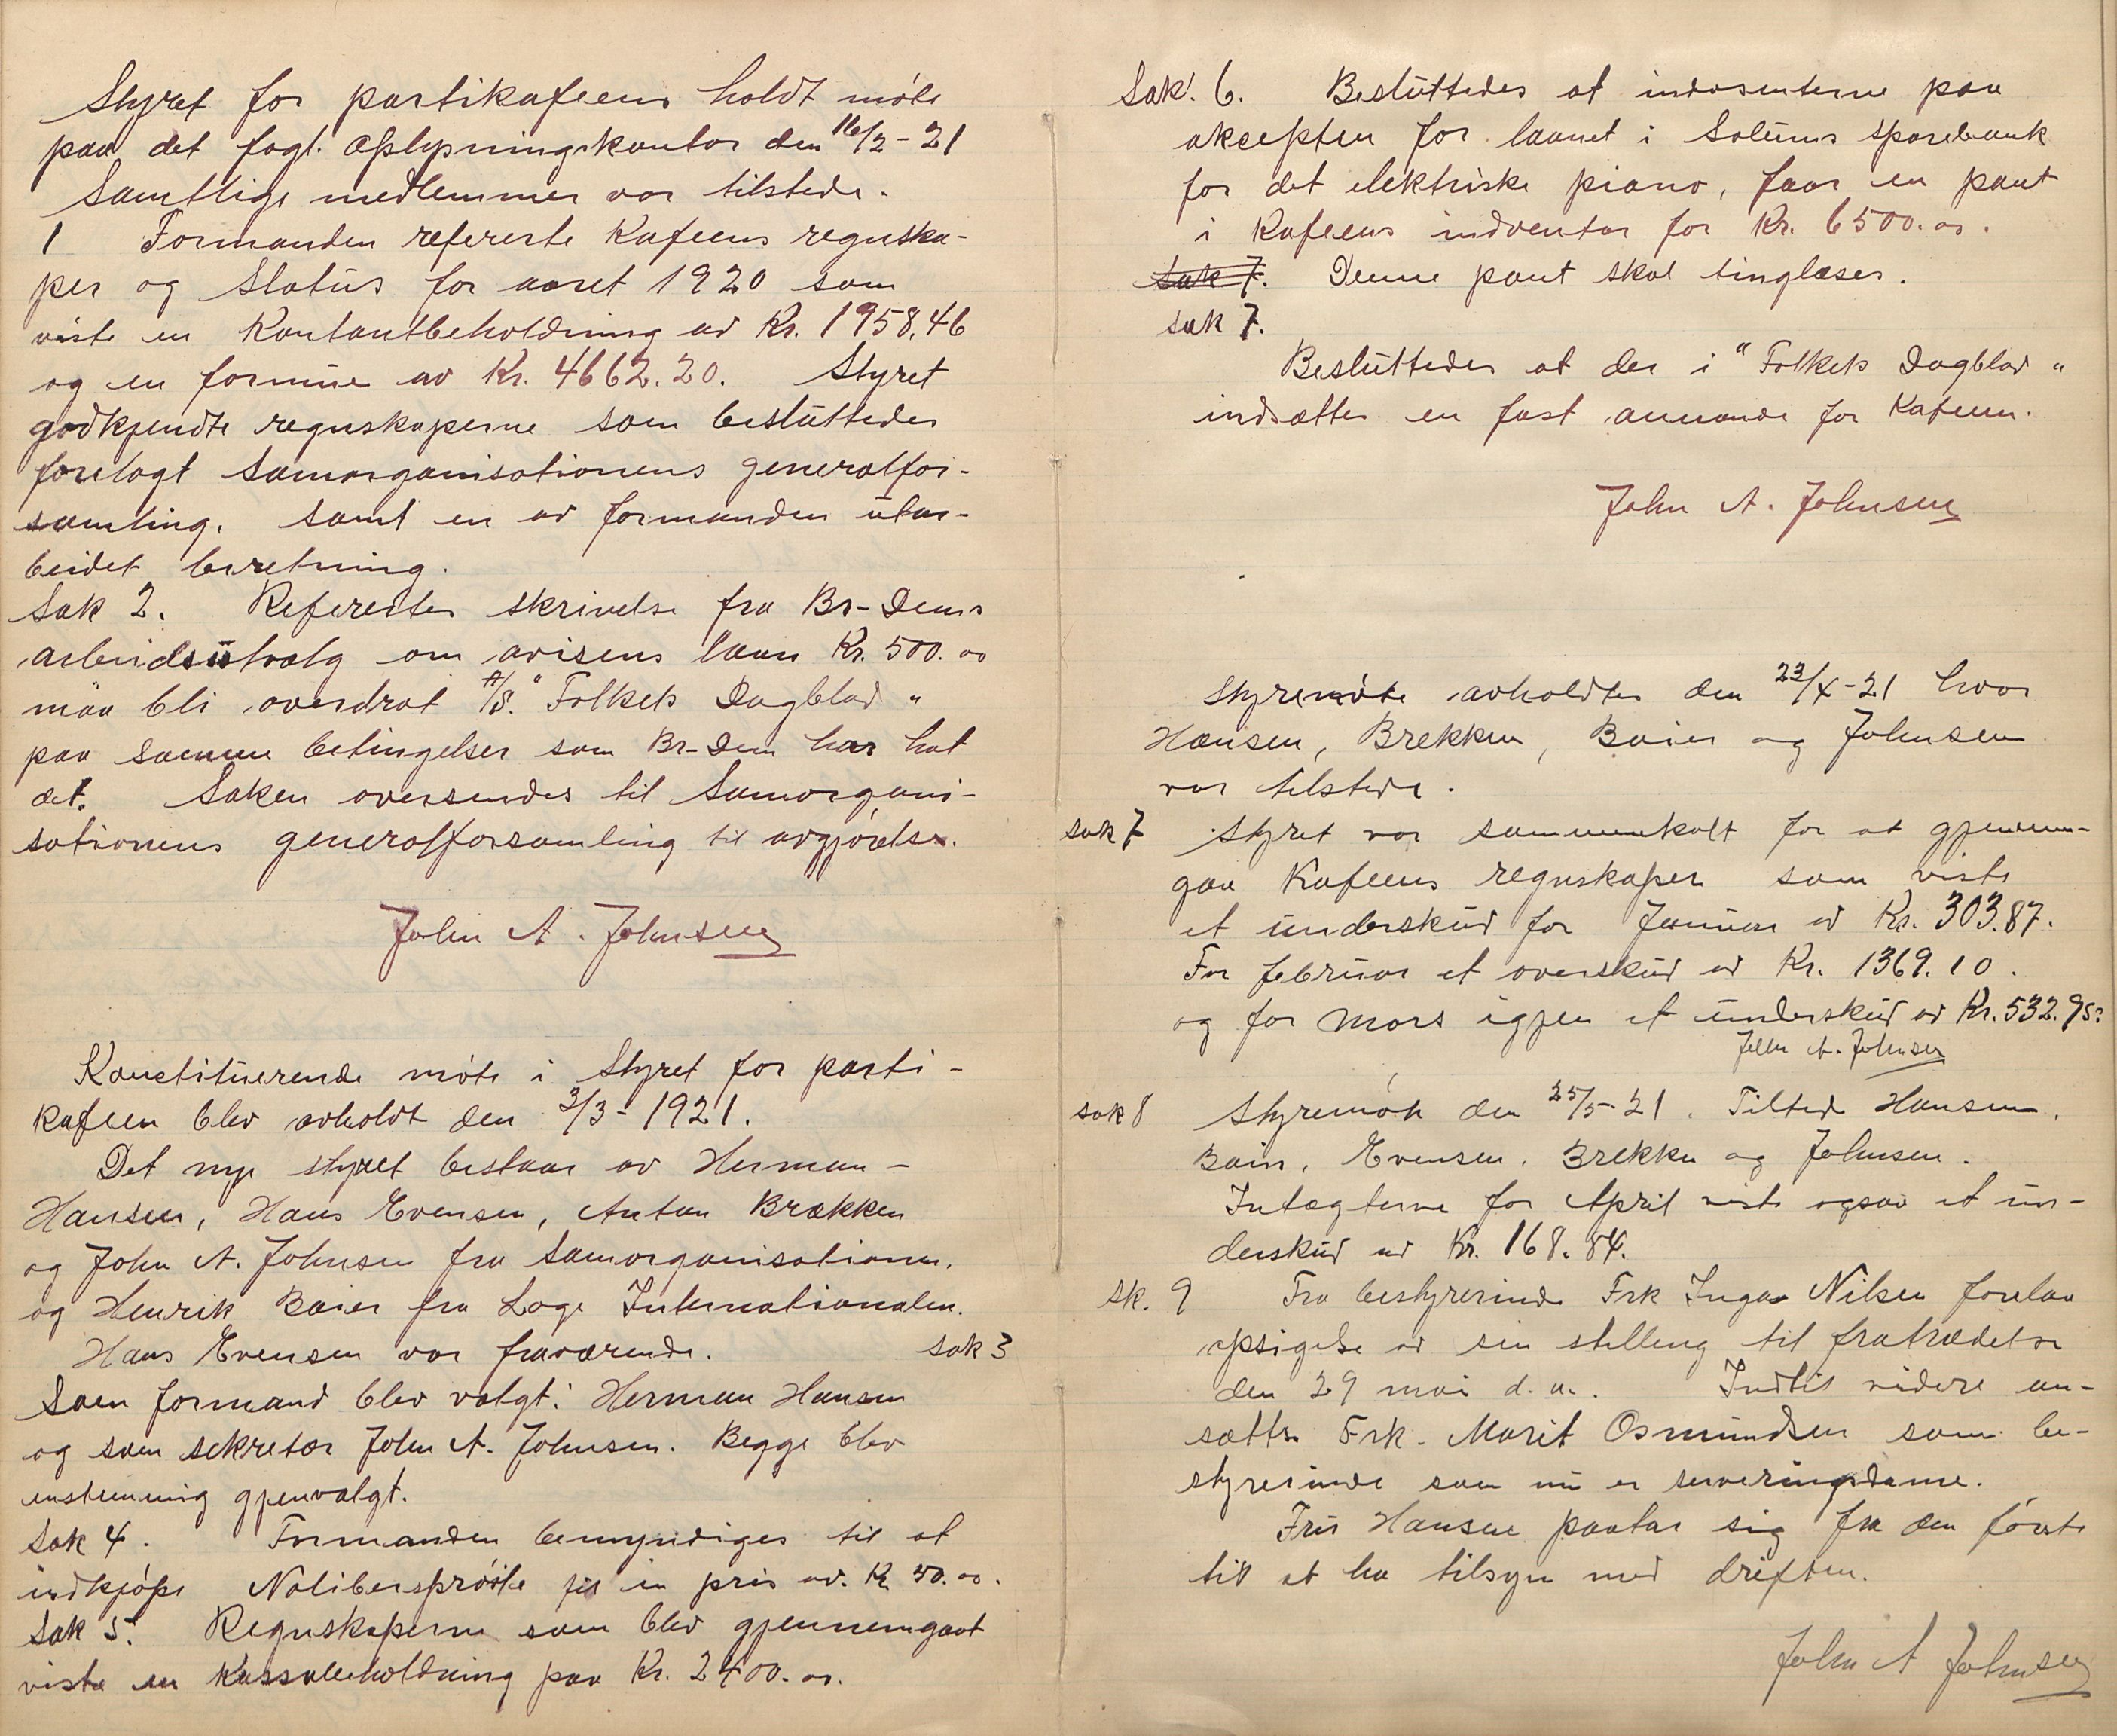 Styret for partikafeens holdt möte
paa det fagl. Oplysningskontor den 16/2-21
Samtlige medlemmer var tilstede.
1 Formanden refererte Kafeens regnska-
per og Status for aaret 1920 som
viste en Kontantbeholdning av Kr. 1958,46
og en formue av Kr. 4662.20. Styret
godkjendte regnskaperne som besluttedes
forelagt Samorganisationens generalfor-
samling. Samt en av formanden utar-
beidet beretning.
Sak 2. Referertes skrivelse fra Br-Dems
arbeidsutvalg om avisens laan Kr. 500.00
maa bli overdrat A/S. "Folkets Dagblad"
paa samme betingelser som Br-Dem har hat
det. Saken oversendes til Samorgani-
sationens generalforsamling til avgjörelse.
John A. Johnsen
Konstituerende möte i Styret for parti-
kafeen blev avholdt den 3/3-1921.
Det nye styret bestaar av Herman-
Hansen, Hans Evensen, Anton Brækken
og John A. Johnsen fra Samorganisationen.
og Henrik Baier fra Loge Internationalen.
Hans Evensen var fraværende. sak 3
Som formand blev valgt: Herman Hansen
og som sekretær John A. Johnsen. Begge blev
enstemmig gjenvalgt.
Sak 4. Formanden bemyndiges til at
indkjöpe til en pris av. Kr. 50.00.
Sak 5. Regnskaperne som blev gjennemgaat
viste en Kassabeholdning paa Kr. 2400.00.
Sak. 6. Besluttedes at indosenterne paa
aksepten for laanet i Solums Sparebank
for det elektriske piano, faar en pant
i Kafeens indventar for Kr. 6500.00.
Sak 7. Denne pant skal tinglæses.
sak 7.
Besluttedes at der i "Folkets Dagblad"
indsættes en fast annonce for Kafeen.
John A. Johnsen
Styremöte avholdtes den 23/4-21 hvor
Hansen, Brekken, Baier og Johnsen
var tilstede.
sak 7 Styret var sammenkalt for at gjennem-
gaa Kafeens regnskaper som viste
et underskud for Januar av Kr. 303.87.
For februar et overskud av Kr. 1369.10.
og for Mars igjen et underskud av Kr. 532.95.
John A. Johnsen
sak 8 Styremöte den 25/5-21. Tilsted Hansen,
Baier, Evensen, Brekke og Johnsen.
Intægterne for April viste ogsaa et un-
derskud av Kr. 168.84.
sk. 9 Fra bestyrerinde Frk Inga Nilsen forelaa
opsigelse av sin stilling til fratrædelse
den 29 mai d.a. Indtil videre an-
sættes Frk. Marit Osmundsen som be-
styrerinde som nu er serveringsdame.
Fru Hansen paatar sig fra den förste
tit at ha tilsyn med driften.
John A Johnsen